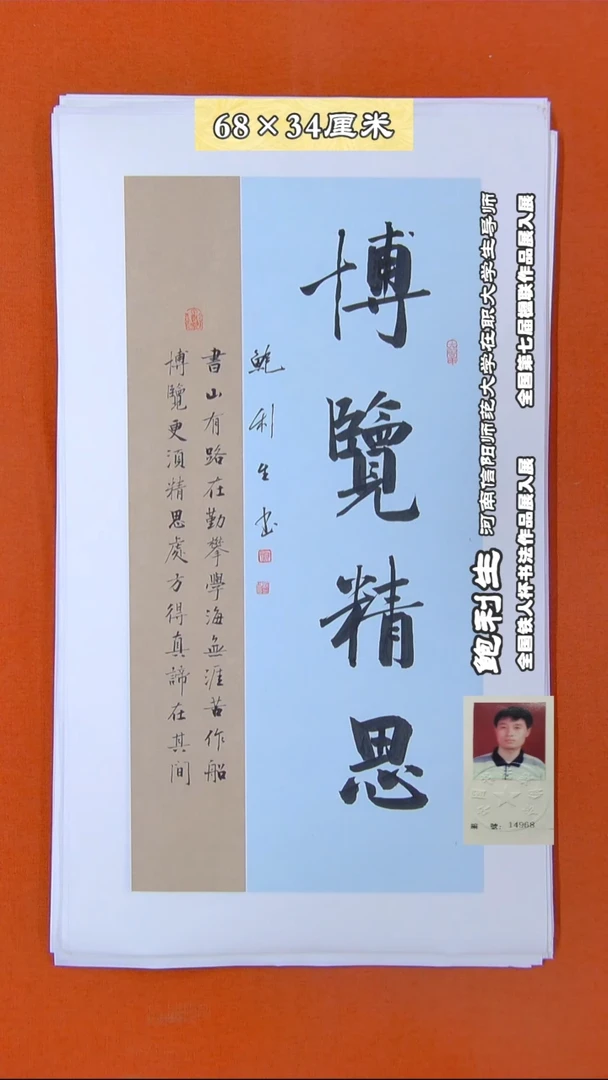 68×34厘米
博覽精思
鲍利生书
書山有路在勤攀學海無涯苦作船
博覽更須精思處方得真諦在其間
鲍利生 河南信阳师范大学在职大学生导师
全国铁人杯书法作品展入展 全国第七届楹联作品展入展
號：14968